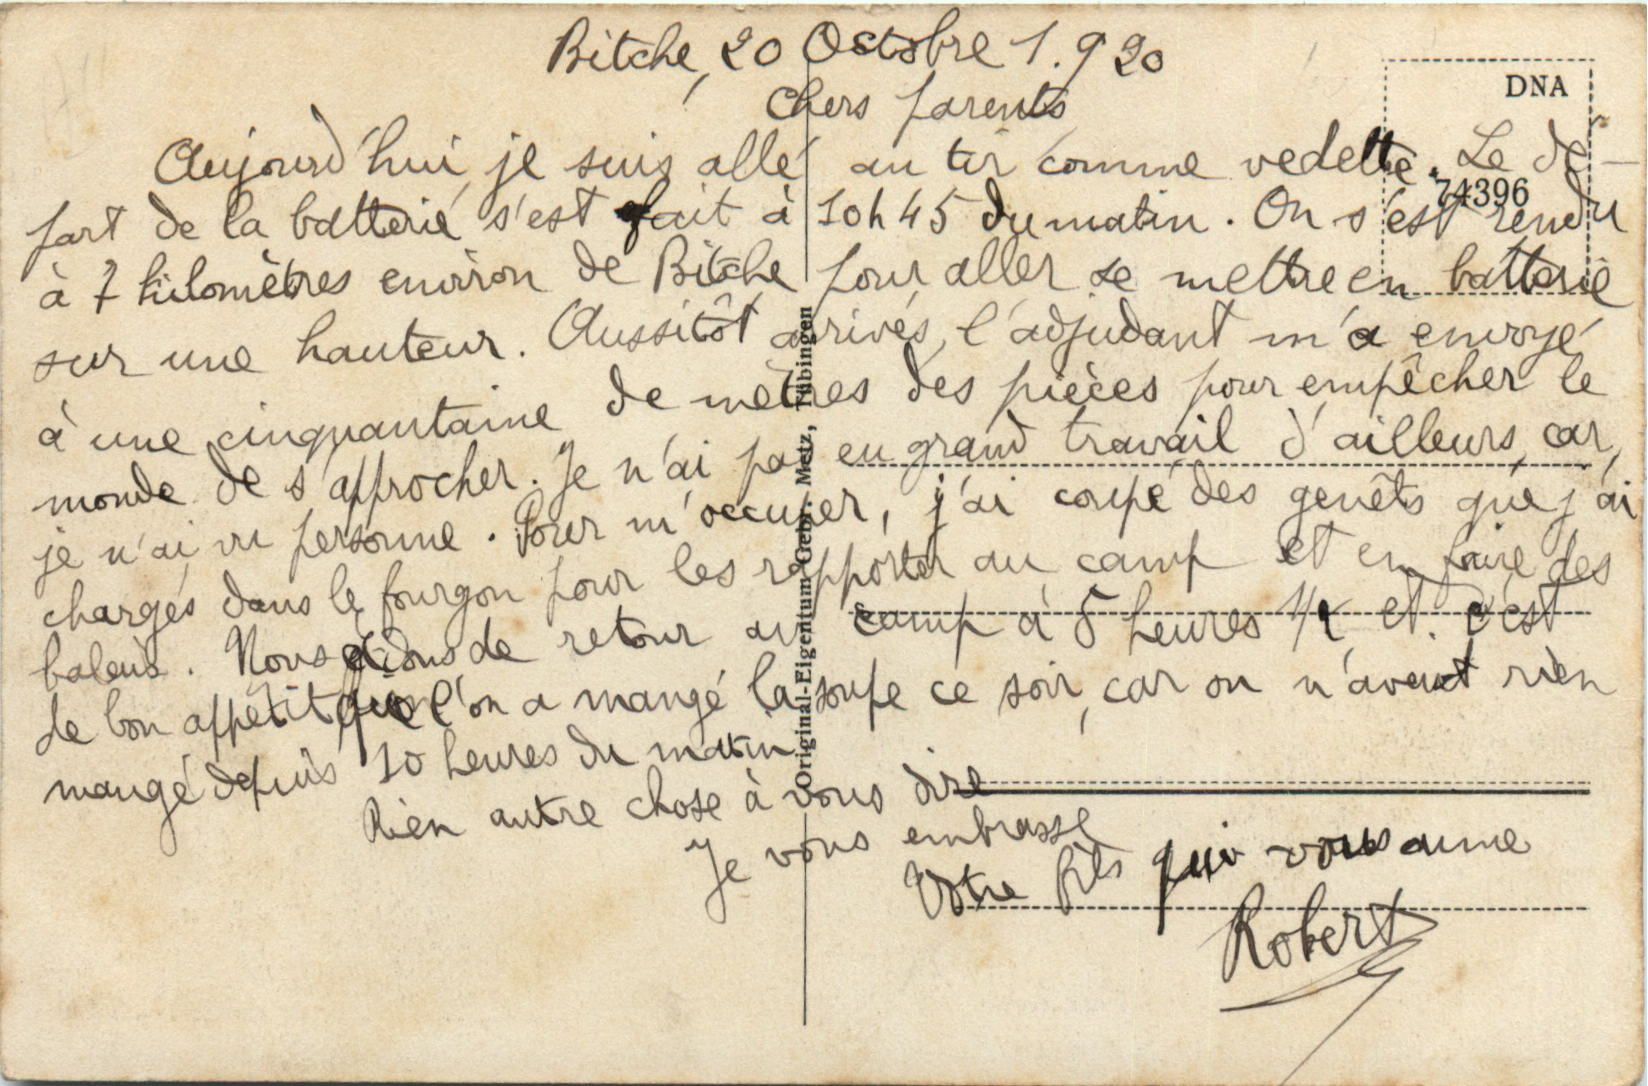 Bitche, 20 Octobre 1.920
Chers parents
Aujourd'hui, je suis allé au tir comme vedette. Le dé-
part de la batterie s'est fait à 10h45 du matin. On s'est rendu
à 7 kilomètres environ de Bitche pour aller se mettre en batterie
sur une hauteur. Aussitôt arrivés, l'adjudant m'a envoyé
à une cinquantaine de mètres des pièces pour empêcher le
monde de s'approcher. Je n'ai pas eu grand travail d'ailleurs, car,
je n'ai vu personne. Pour m'occuper, j'ai coupé des genêts que j'ai
chargés dans le fourgon pour les rapporter au camp et en faire des
balais. Nous étions de retour au camp à 5 heures 1/2 et. c'est
de bon appétit que l'on a mangé la soupe ce soir, car on n'avait rien
mangé depuis 10 heures du matin
Rien autre chose à vous dire
Je vous embrasse
Votre fils qui vous aime
Robert
DNA
74396
Original-Eigentum Gebr. Metz, Tübingen